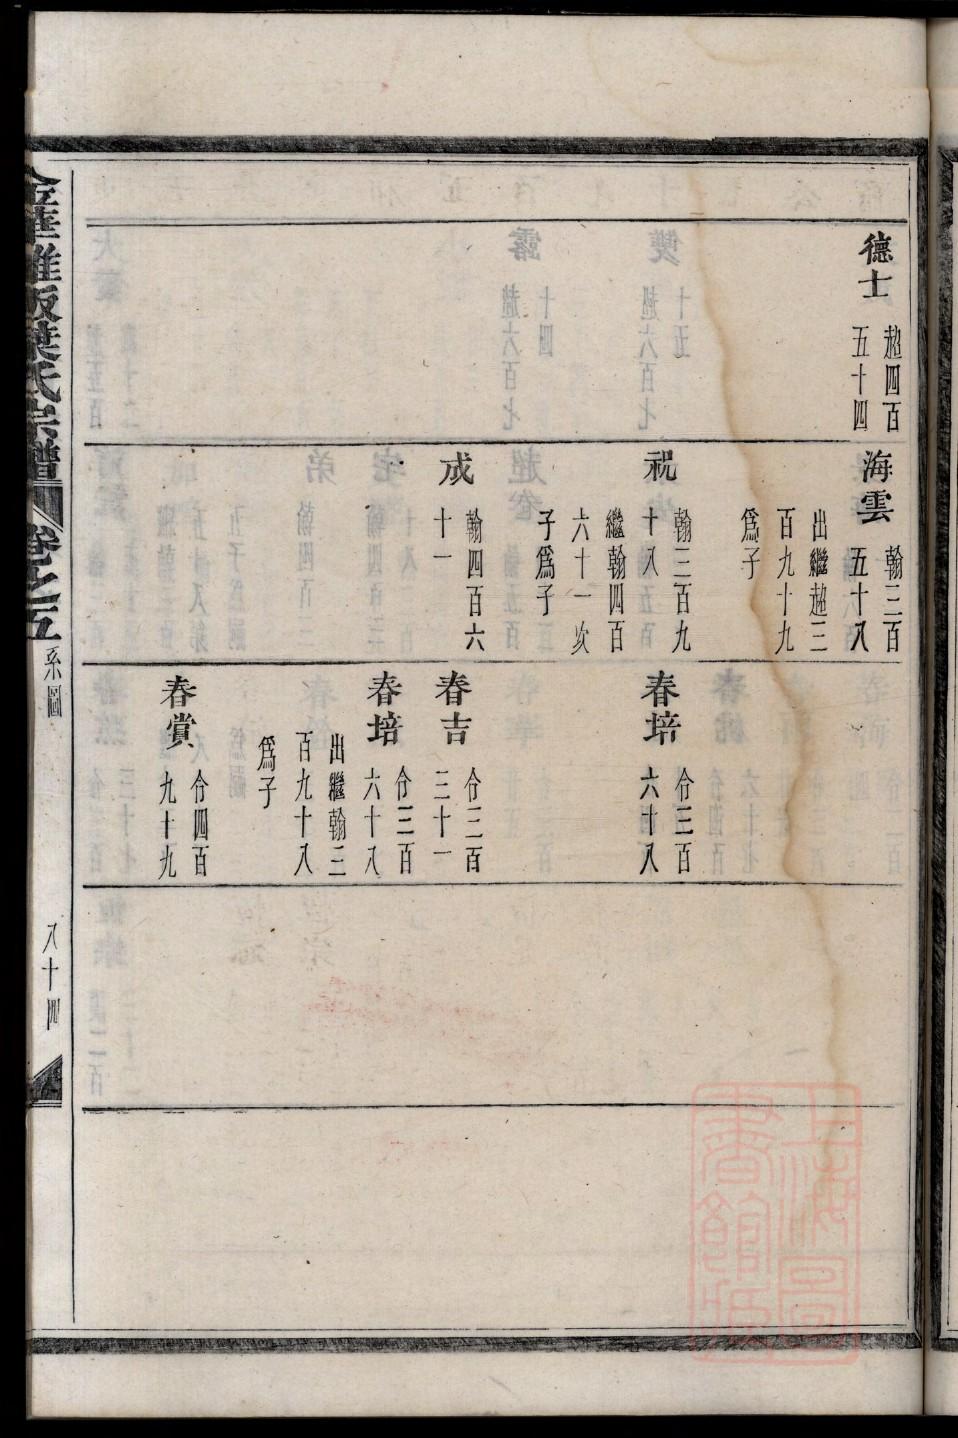 德士
超四百
五十四
海雲
翰三百
五十八
出繼超三
百九十九
爲子
祝
翰三百九
十八
繼翰四百
六十一次
子爲子
成
翰四百六
十一
春培
仱三百
六十八
春吉
仱三百
三十一
春培
仱三百
六十八
出繼翰三
百九十八
爲子
春賞
仱四百
九十九
葉氏宗譜
卷之五
系圖
八十四
上海圖
書館藏